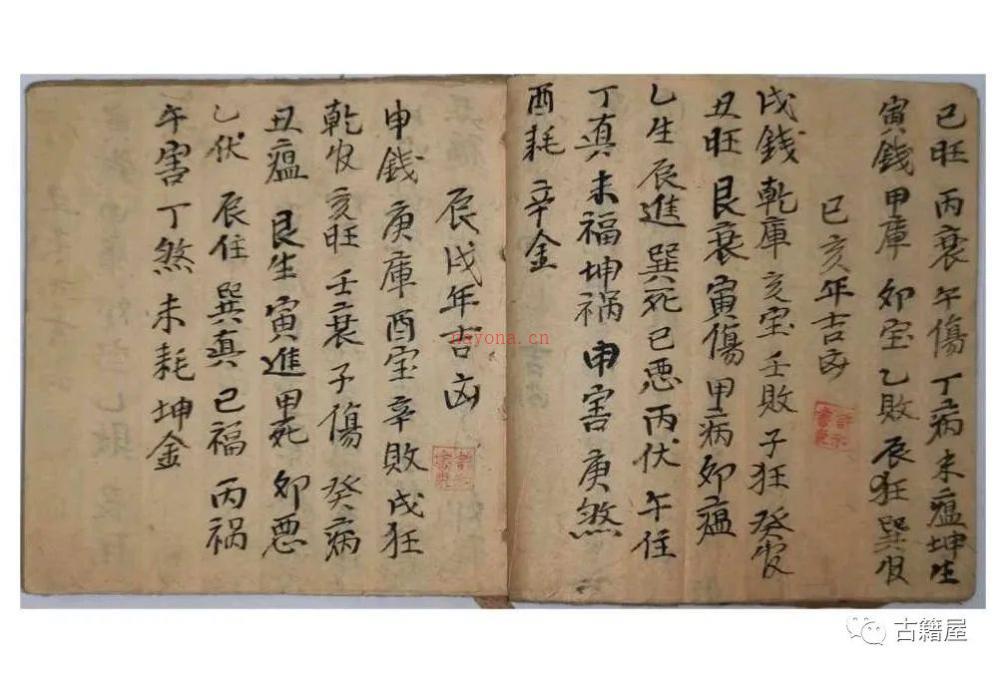 巳旺 丙衰 午傷 丁病 未瘟 坤生
寅錢 甲庫 卯宝 乙敗 辰狂 巽官
巳亥年吉凶
戌錢 乾庫 亥宝 壬敗 子狂 癸官
丑旺 艮衰 寅傷 甲病 卯瘟
乙生 辰進 巽死 巳恶 丙伏 午住
丁真 未福 坤祸 申害 庚煞
酉耗 辛金
辰戌年吉凶
申錢 庚庫 酉宝 辛敗 戌狂
乾官 亥旺 壬衰 子傷 癸病
丑瘟 艮生 寅進 甲死 卯恶
乙伏 辰住 巽真 巳福 丙祸
午害 丁煞 未耗 坤金
nayona.cn
古籍屋